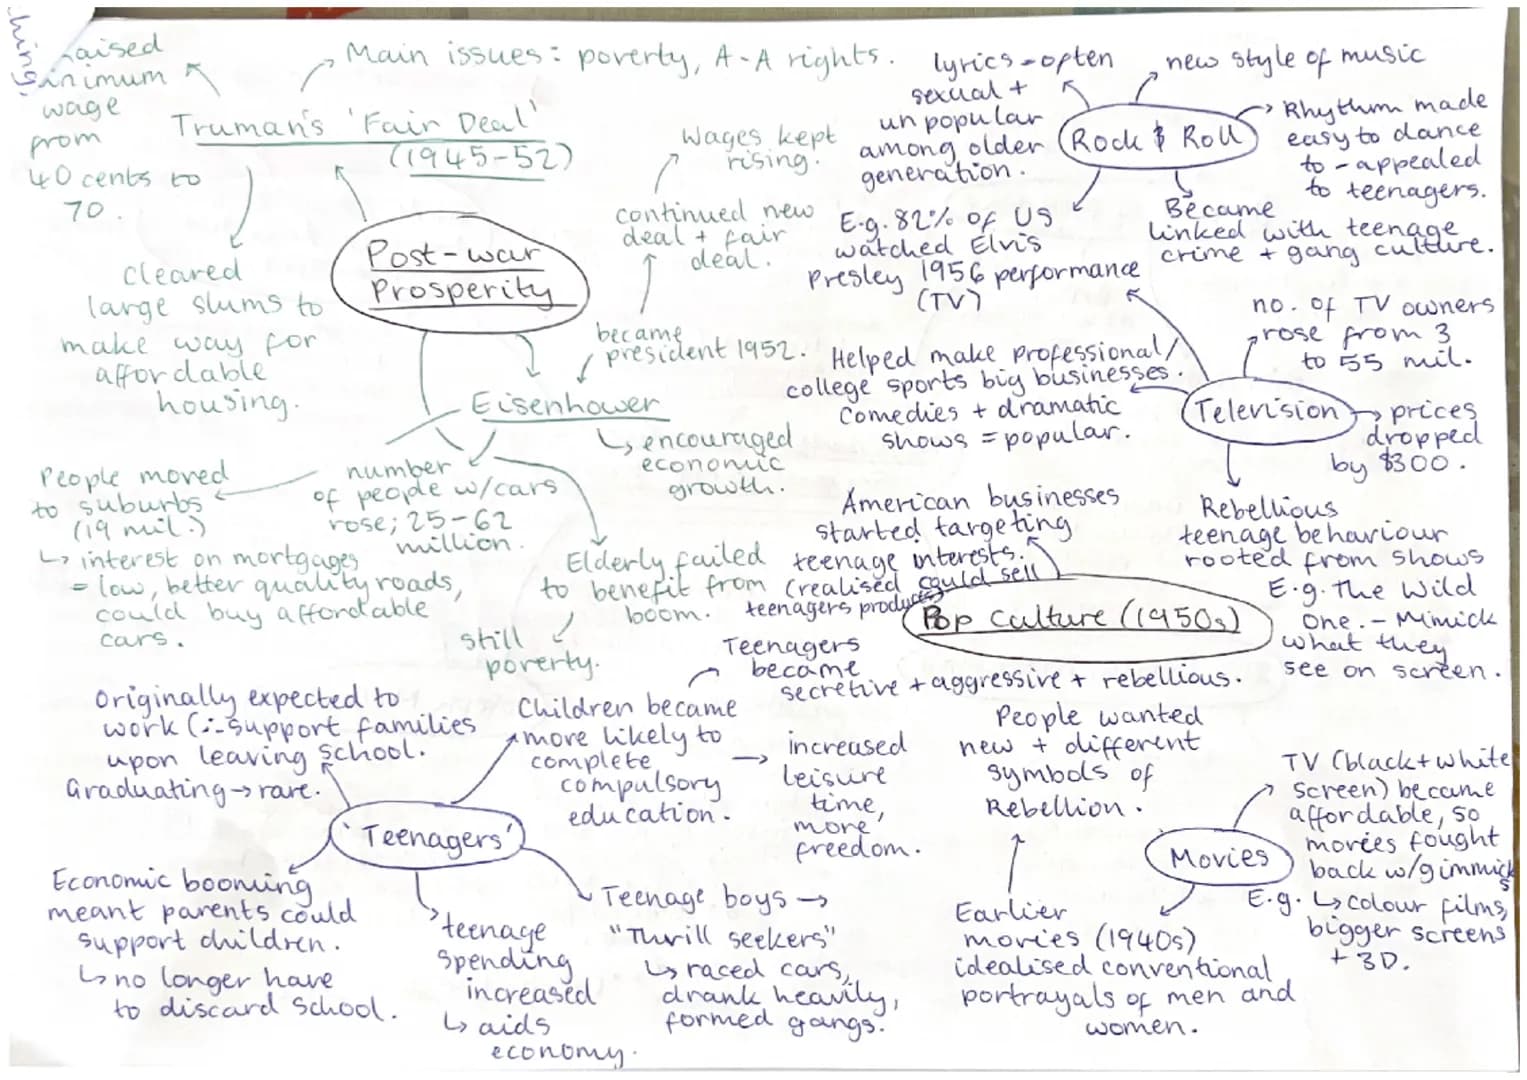 raised
minimum
wage
from
40 cents to
70.
Main issues: poverty, A-A rights.
Truman's 'Fair Deal'
(1945-52)
Post-war
Prosperity
cleared
large slums to
make way for
affordable
housing.
Wages kept
rising.
continued new
deal + fair
deal.
became
president 1952.
Eisenhower
encouraged
economic
growth.
People moved
to suburbs
(19 mil.)
↳ interest on mortgages
= low, better quality roads,
could buy affordable
cars.
number
of people w/cars
rose; 25-62
million.
Elderly failed
to benefit from
boom.
still
poverty.
lyrics - often
sexual +
unpopular
among older
generation.
new style of music
Rock & Roll
Rhythm made
easy to dance
to - appealed
to teenagers.
Became
linked with teenage
crime + gang culture.
E.g. 82% of US
watched Elvis
Presley 1956 performance
(TV)
no. of TV owners
rose from 3
to 55 mil.
Helped make professional/
college sports big businesses.
Comedies + dramatic
shows = popular.
Television
prices
dropped
by $300.
Rebellious
teenage behaviour
rooted from shows
E.g. The Wild
One. - Mimick
what they
see on screen.
American businesses
started targeting
teenage interests.
(realised could sell
teenagers produces)
Pop Culture (1950s)
Teenagers
became
secretive + aggressive + rebellious.
Originally expected to
work (∴ support families
upon leaving school.
Graduating → rare.
Children became
more likely to
complete
compulsory
education.
→ increased
leisure
time,
more
freedom.
'Teenagers'
Economic booming
meant parents could
support children.
↳ no longer have
to discard school.
teenage
spending
increased
↳ aids
economy.
Teenage boys →
"Thrill seekers"
↳ raced cars,
drank heavily,
formed gangs.
People wanted
new + different
symbols of
Rebellion.
Movies
TV (black + white
screen) became
affordable, so
movies fought
back w/gimmicks
E.g. ↳ colour films,
bigger screens
+ 3D.
Earlier
movies (1940s)
idealised conventional
portrayals of men and
women.